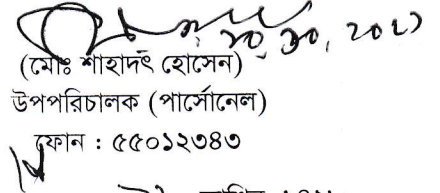 ১০.১০.২০২১
(মোঃ শাহাদৎ হোসেন)
উপপরিচালক (পার্সোনেল)
ফোন : ৫৫০১২৩৪৩